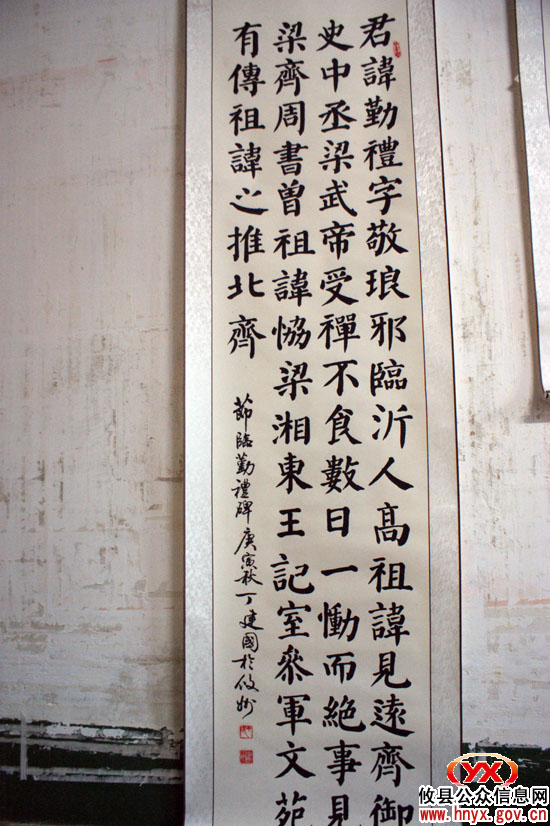 君諱勤禮字敬琅邪臨沂人高祖諱見遠齊御
史中丞梁武帝受禪不食數日一慟而絕事見
梁齊周書曾祖諱恊梁湘東王記室叅軍文苑
有傳祖諱之推北齊
節臨勤禮碑庚寅秋丁建國於攸州
YX
攸县公众信息网
www.hnyx.gov.cn